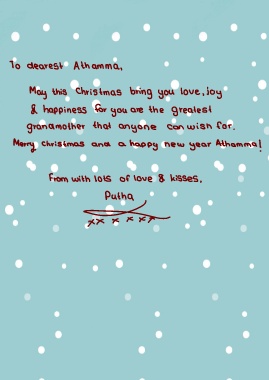 To dearest Athamma,
May this Christmas bring you love, joy
& happiness for you are the greatest
grandmother that anyone can wish for.
Merry Christmas and a happy new year Athamma!
From with lots of love & kisses,
Putha
x x x x x x